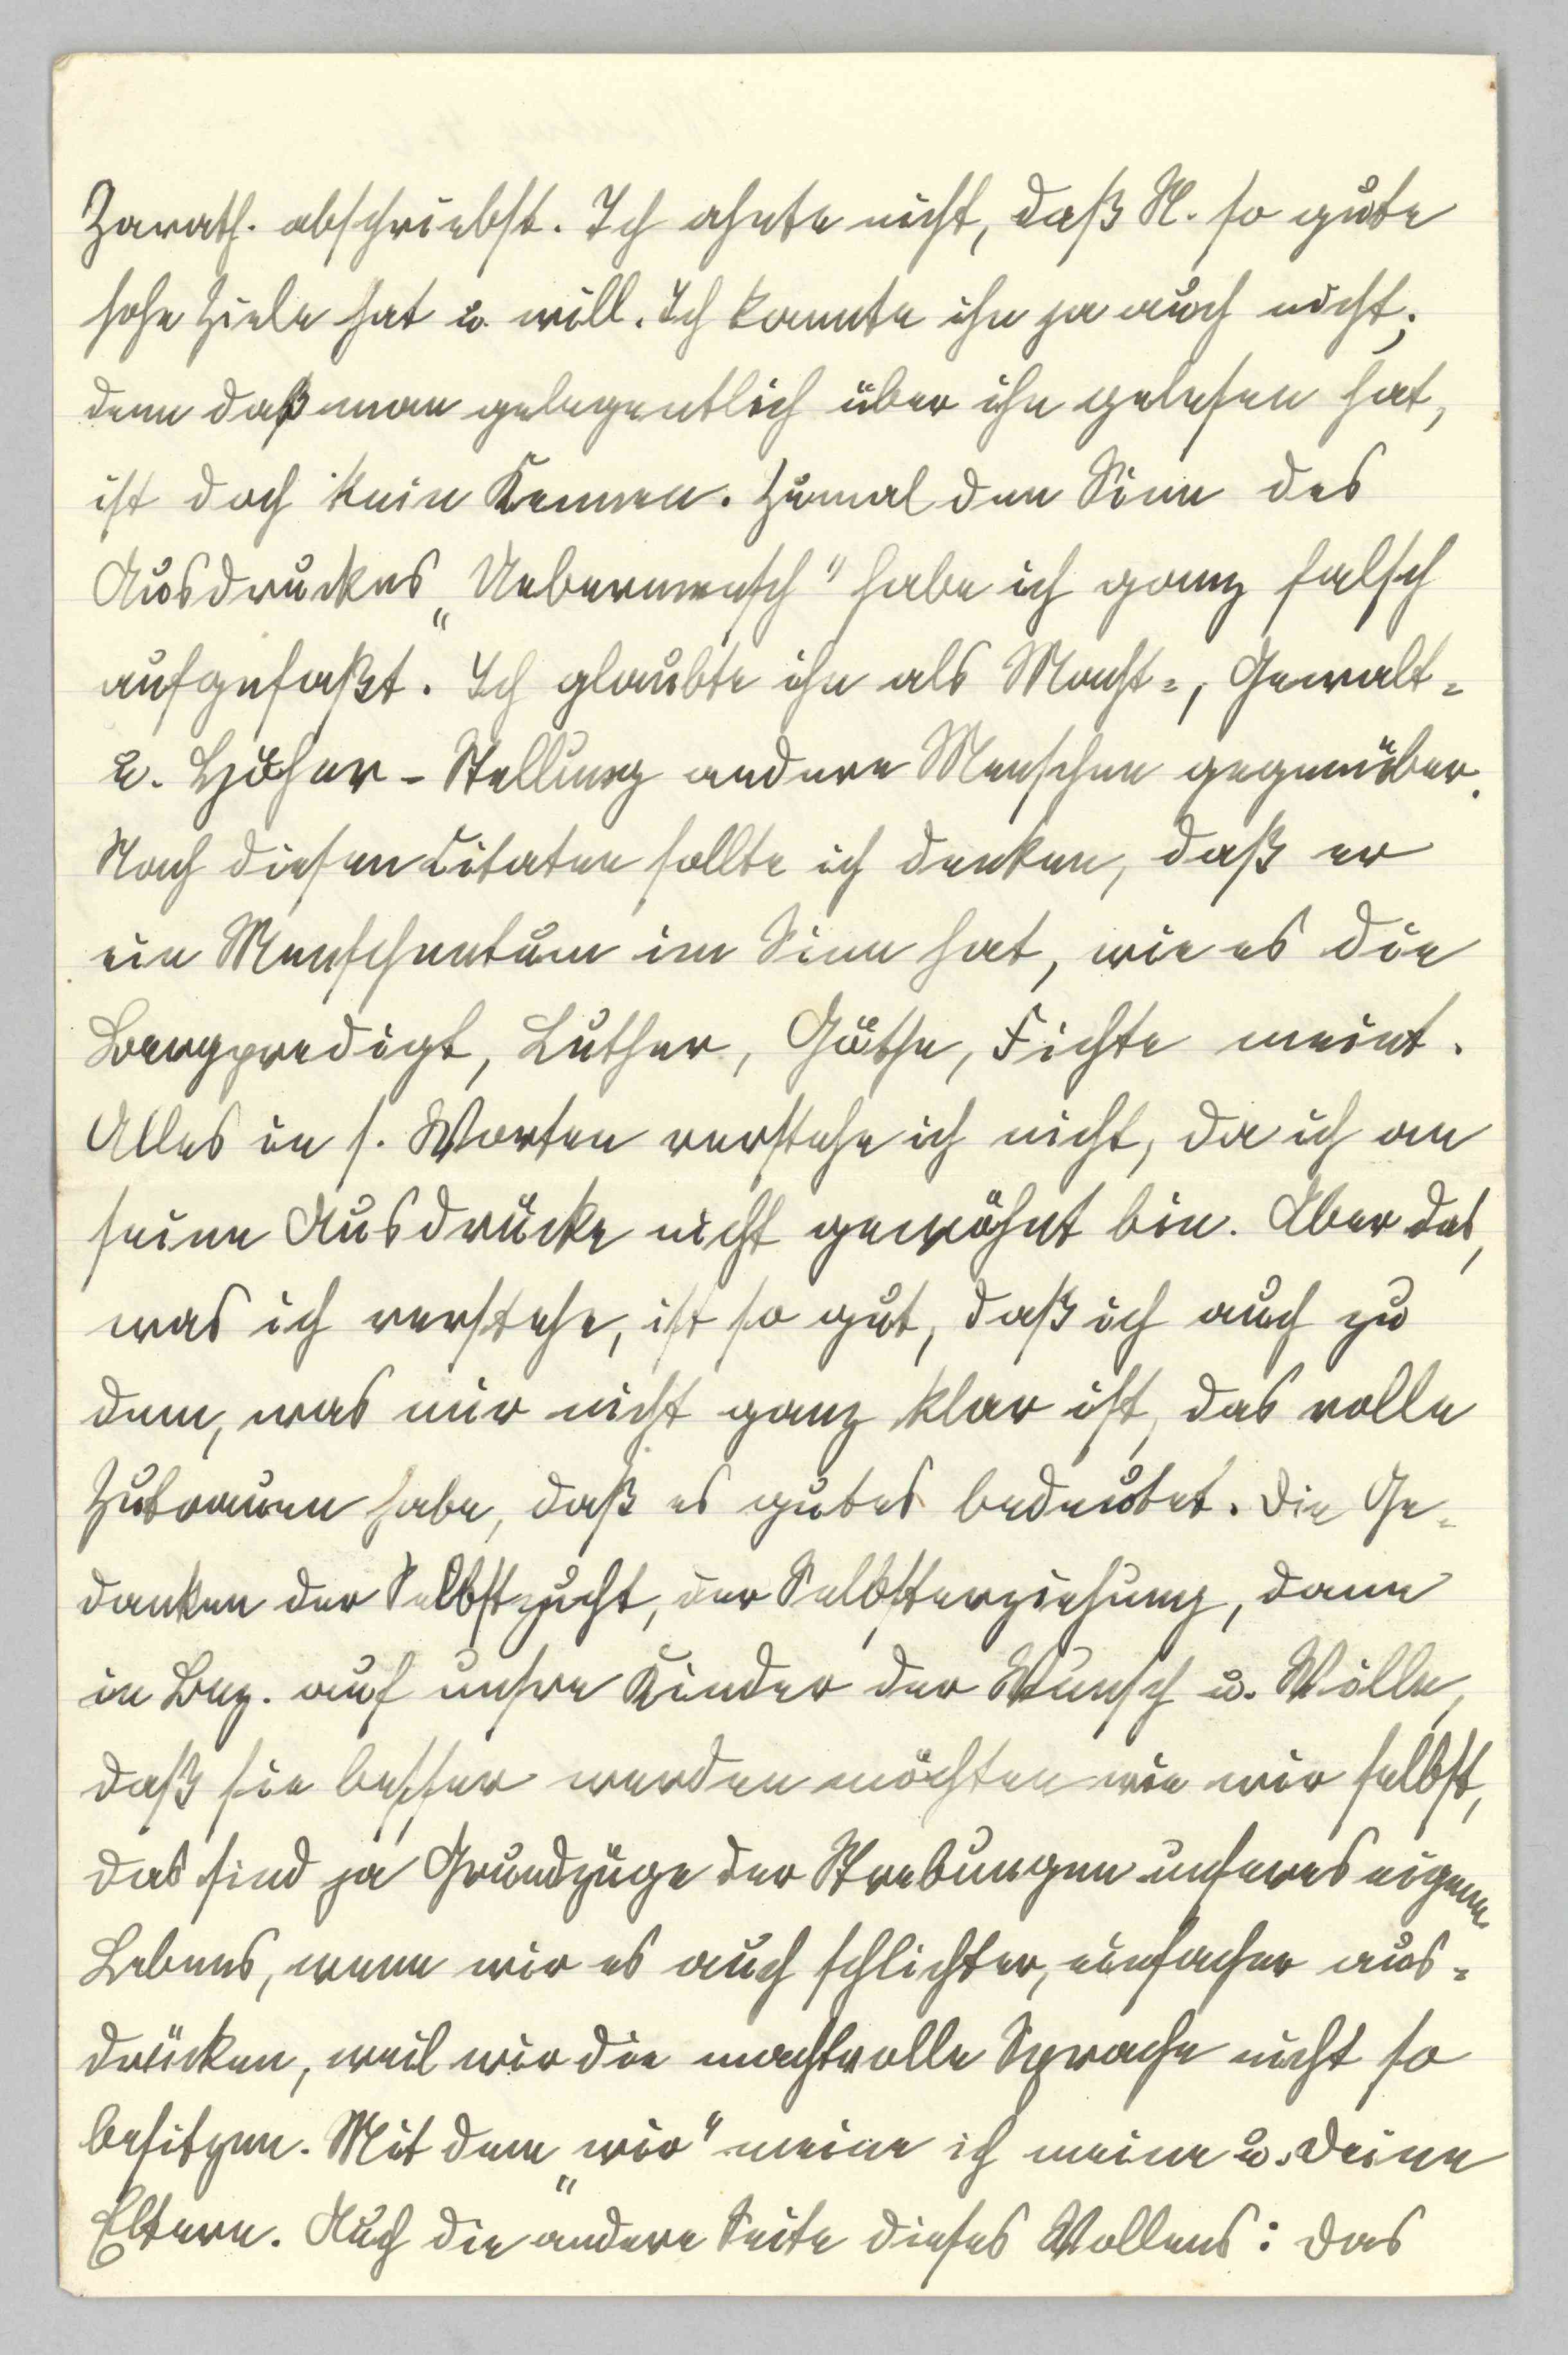 Zarath. abschriebst. Ich ahnte nicht, daß N. so gute
hohe Ziele hat u. will. Ich kannte ihn ja auch nicht;
denn daß man gelegentlich über ihn gelesen hat,
ist doch kein Kennen. Zumal den Sinn des
Ausdruckes „Uebermensch" habe ich ganz falsch
aufgefaßt. Ich glaubte ihn als Macht-, Gewalt-
u. Höher-Stellung andere Menschen gegenüber.
Nach diesen Citaten sollte ich denken, daß er
ein Menschentum im Sinn hat, wie es die
Bergpredigt, Luther, Göthe, Fichte meint.
Alles in s. Worten verstehe ich nicht, da ich an
seine Ausdrücke nicht gewöhnt bin. Aber das,
was ich verstehe, ist so gut, daß ich auch zu
dem, was mir nicht ganz klar ist, das volle
Zutrauen habe, daß es gutes bedeutet. Die Ge-
danken der Selbstzucht, der Selbsterziehung, dann
in Bez. auf unsre Kinder der Wunsch u. Wille,
daß sie besser werden möchten wie wir selbst,
das sind ja Grundzüge der Strebungen unseres eigenen
Lebens, wenn wir es auch schlichter, einfacher aus-
drücken, weil wir die machtvolle Sprache nicht so
besitzen. Mit dem „wir" meine ich meine u. Deine
Eltern. Auch die andere Seite dieses Wollens: das